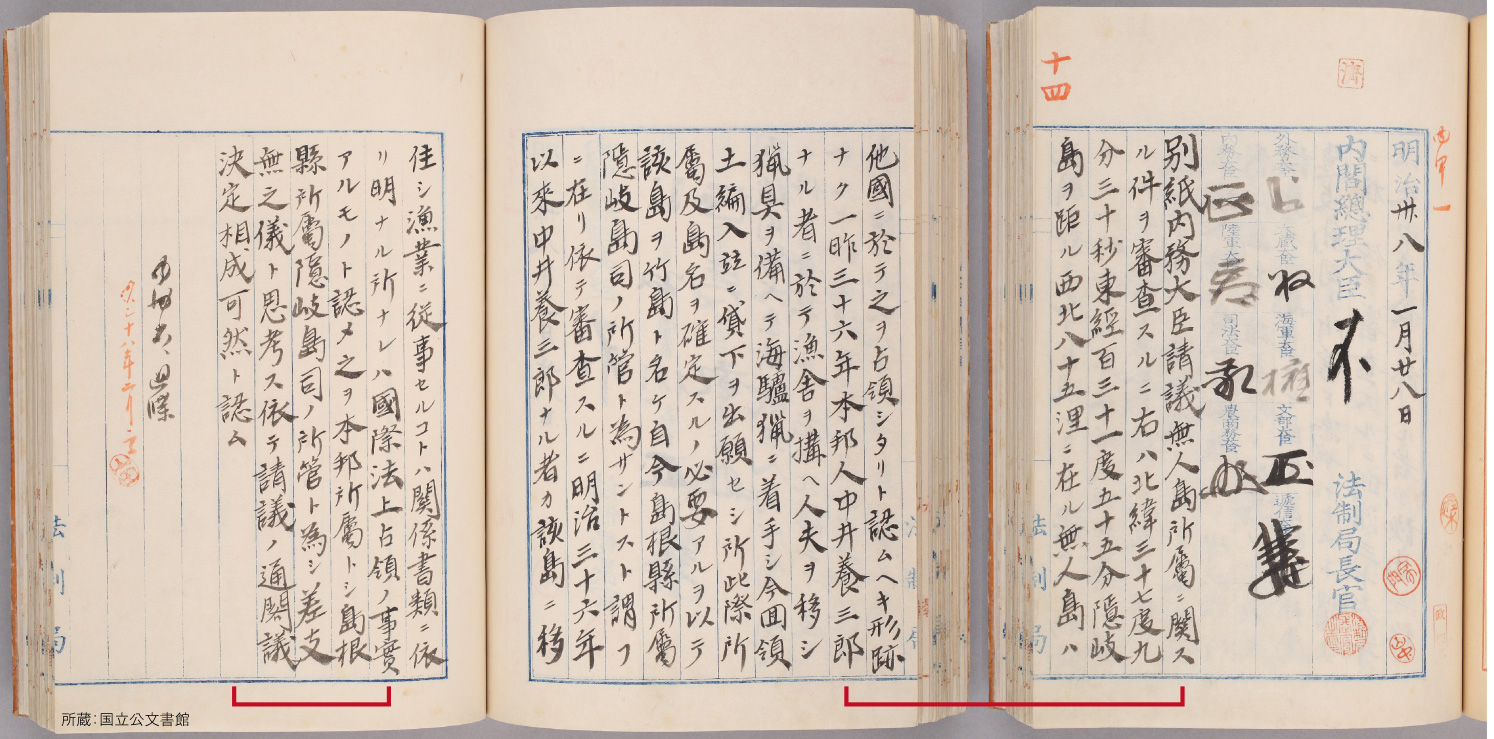 十四
濟
明治卅八年一月廿八日
内閣總理大臣
法制局長官
外務大臣
大藏大臣
海軍大臣
文部大臣
遞信大臣
内務大臣
陸軍大臣
司法大臣
農商務大臣
別紙内務大臣請議無人島所屬ニ関ス
ル件ヲ審査スルニ右ハ北緯三十七度九
分三十秒東経百三十一度五十五分隠岐
島ヲ距ル西北八十五浬ニ在ル無人島ハ
法制局
他國ニ於テ之ヲ占領シタリト認ムヘキ形跡
ナク一昨三十六年本邦人中井養三郎
ナル者ニ於テ漁舎ヲ構ヘ人夫ヲ移シ
猟具ヲ備ヘテ海驢猟ニ着手シ今回領
土編入竝ニ貸下ヲ出願セシ所此際所
屬及島名ヲ確定スルノ必要アルヲ以テ
該島ヲ竹島ト名ケ自今島根縣所屬
隠岐島司ノ所管ト為サントスト謂フ
ニ在リ依テ審査スルニ明治三十六年
以來中井養三郎ナル者カ該島ニ移
住シ漁業ニ従事セルコトハ関係書類ニ依
リ明ナル所ナレハ國際法上占領ノ事實
アルモノト認メ之ヲ本邦所屬トシ島根
縣所屬隠岐島司ノ所管ト為シ差支
無之儀ト思考ス依テ請議ノ通閣議
決定相成可然ト認ム
法制局
所蔵：国立公文書館